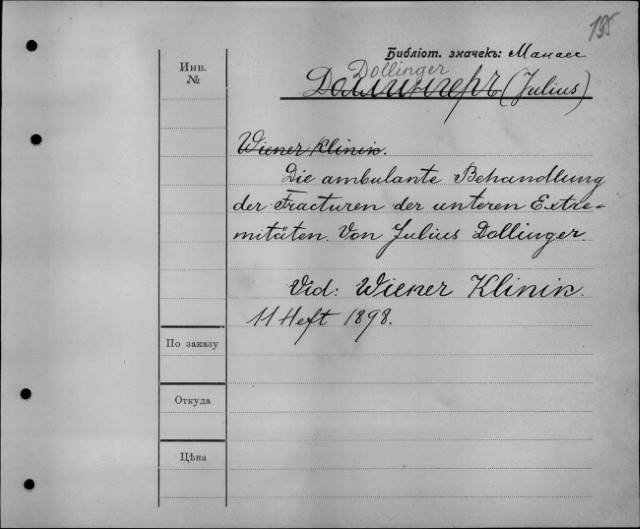 195
Библіот. значекъ: Манасс
Dollinger
Доллингеръ (Julius)
Инв.
№
Wiener Klinik.
Die ambulante Behandlung
der Fracturen der unteren Extre-
mitäten. Von Julius Dollinger.
Vid: Wiener Klinik.
11 Heft 1898.
По заказу
Откуда
Цѣна